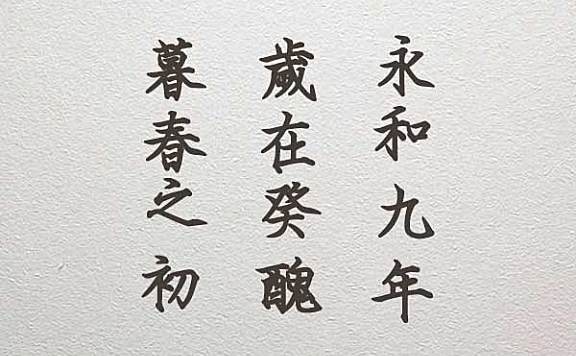 永和九年
歲在癸醜
暮春之初